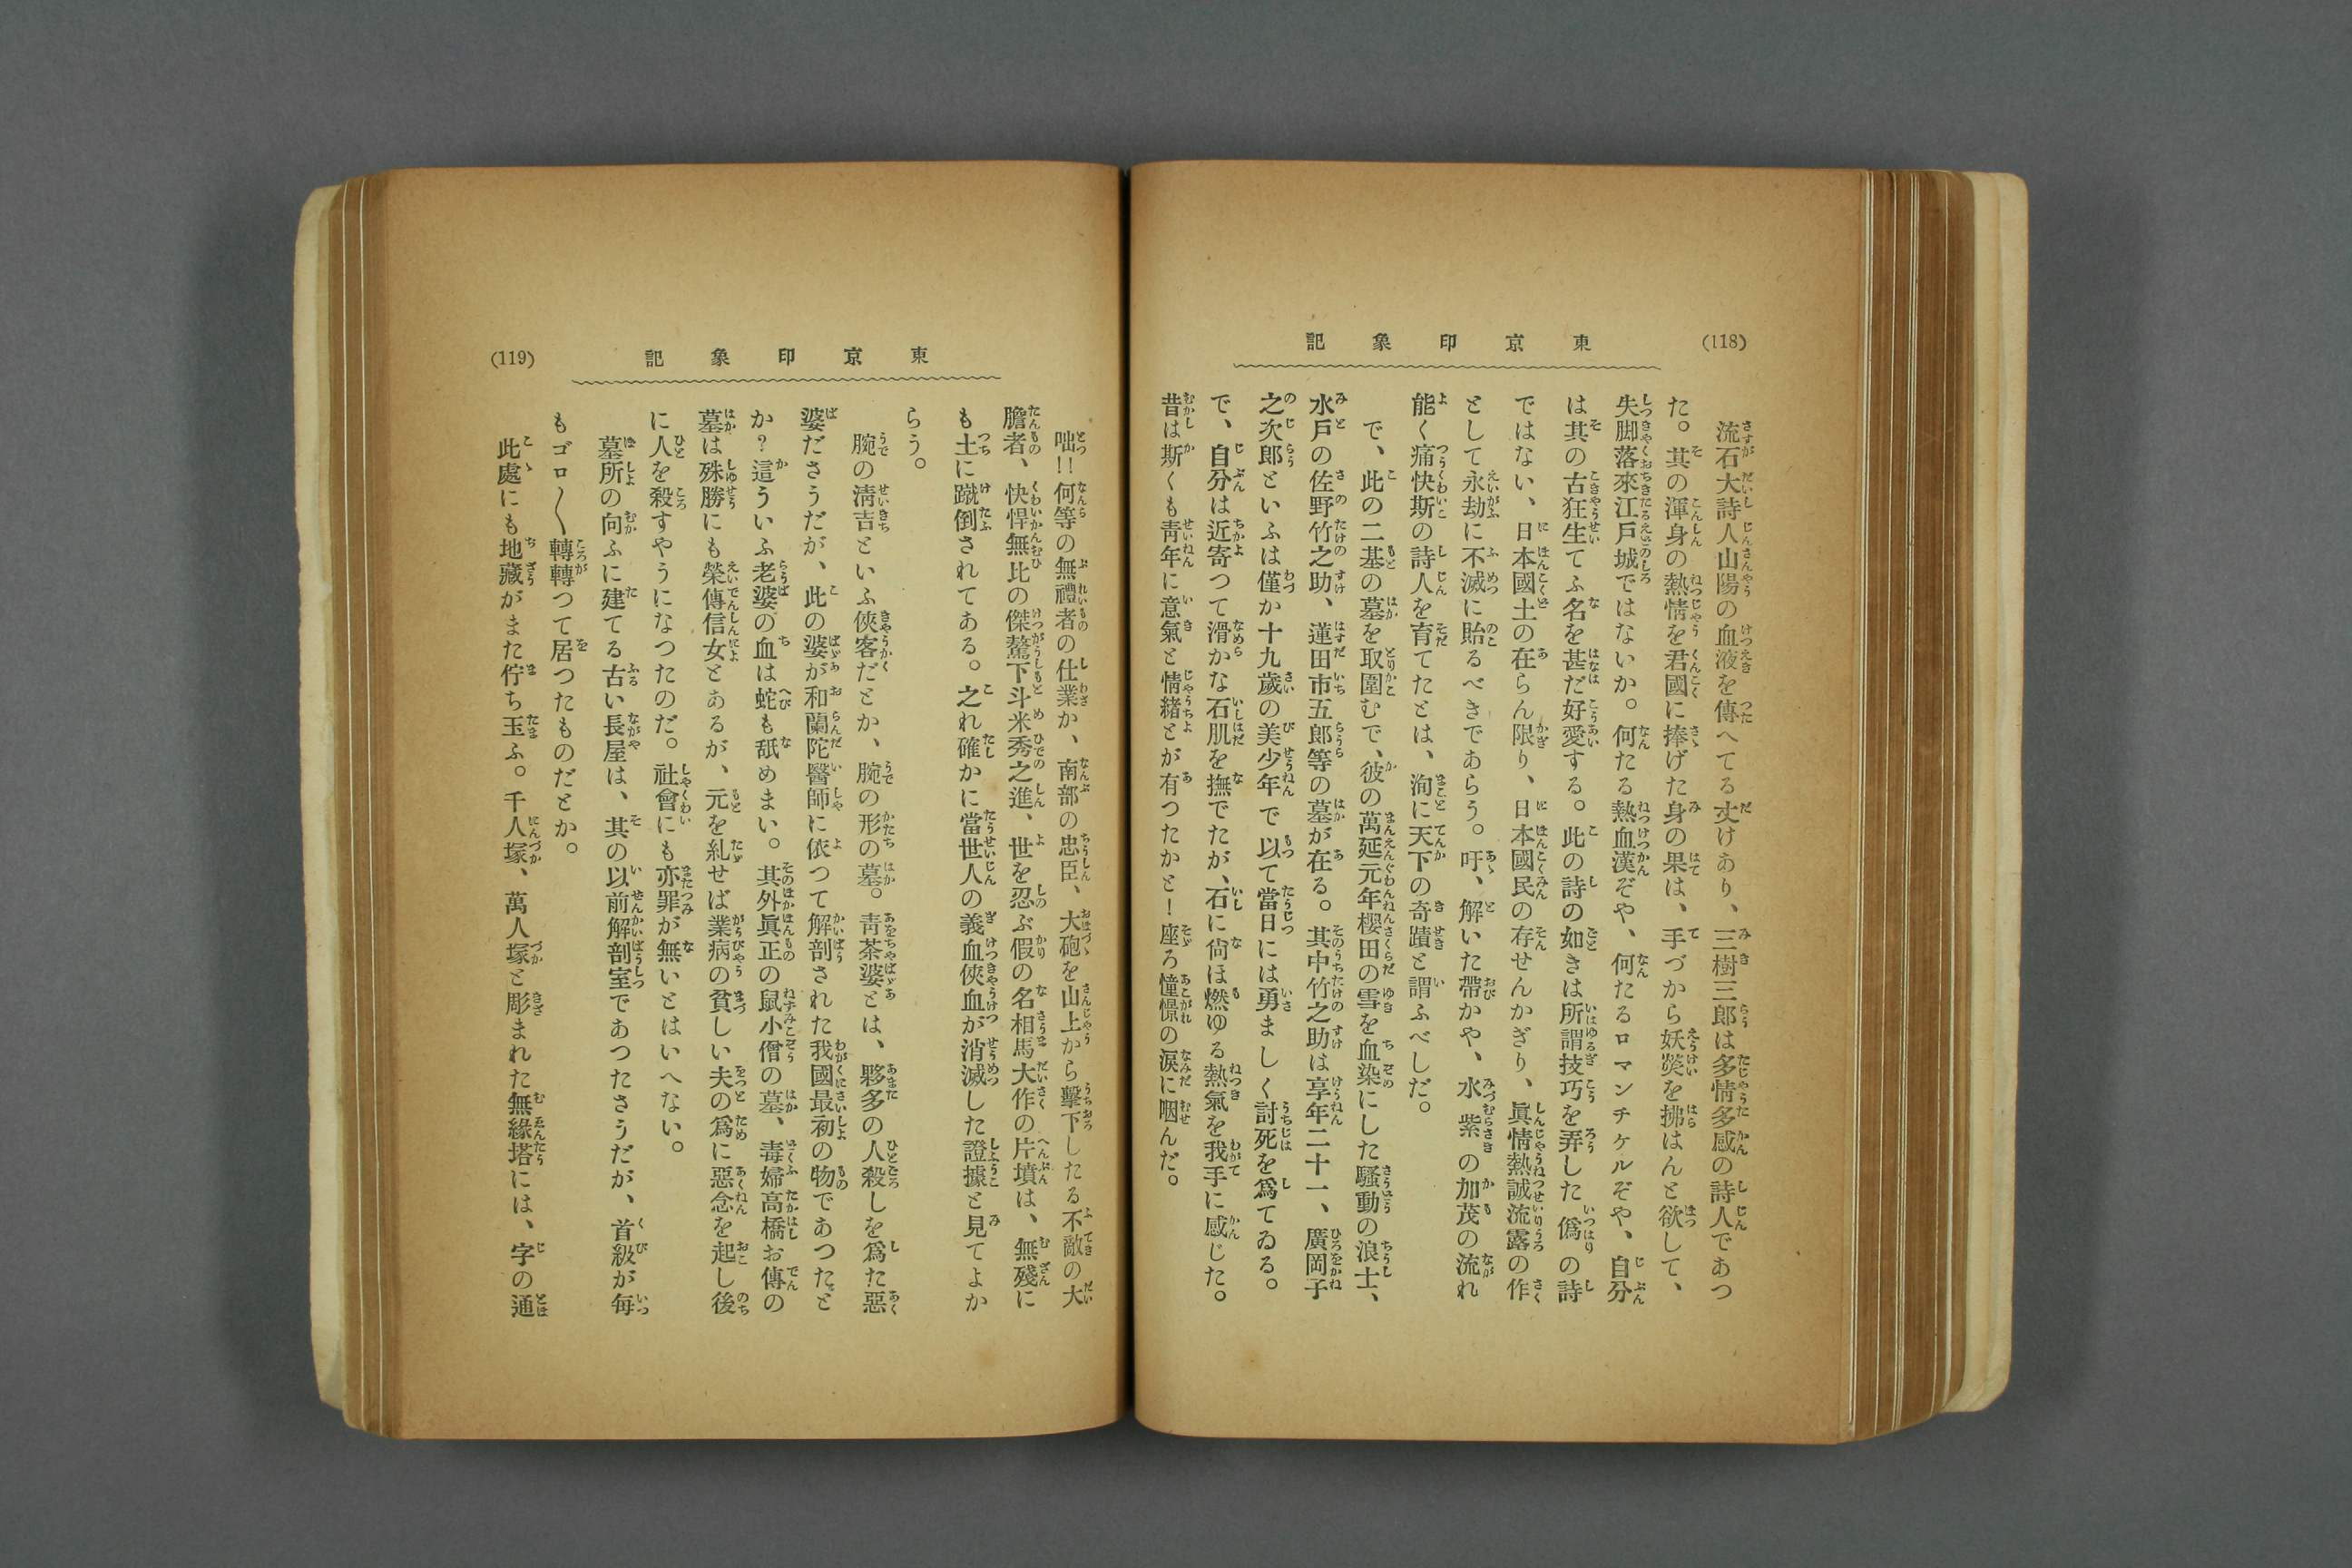 (118)
東京印象記
流石大詩人山陽の血液を傳へてる丈けあり、三樹三郎は多情多感の詩人であつ
た。其の渾身の熱情を君國に捧げた身の果は、手づから妖熒を拂はんと欲して、
失脚落來江戸城ではないか。何たる熱血漢ぞや、何たるロマンチケルぞや、自分
は其の古狂生てふ名を甚だ好愛する。此の詩の如きは所謂技巧を弄した僞の詩
ではない、日本國土の在らん限り、日本國民の存せんかぎり、眞情熱誠流露の作
として永劫に不滅に貽るべきであらう。吁、解いた帶かや、水紫の加茂の流れ
能く痛快斯の詩人を育てたとは、洵に天下の奇蹟と謂ふべしだ。
で、此の二基の墓を取圍むで、彼の萬延元年櫻田の雪を血染にした騷動の浪士、
水戸の佐野竹之助、蓮田市五郎等の墓が在る。其中竹之助は享年二十一、廣岡子
之次郎といふは僅か十九歲の美少年で以て當日には勇ましく討死を爲てゐる。
で、自分は近寄つて滑かな石肌を撫でたが、石に尙ほ燃ゆる熱氣を我手に感じた。
昔は斯くも靑年に意氣と情緖とが有つたかと！座ろ憧憬の淚に咽んだ。
東京印象記
(119)
咄!!何等の無禮者の仕業か、南部の忠臣、大砲を山上から擊下したる不敵の大
膽者、快悍無比の傑驁下斗米秀之進、世を忍ぶ假の名相馬大作の片墳は、無殘に
も土に蹴倒されてある。之れ確かに當世人の義血俠血が消滅した證據と見てよか
らう。
腕の淸吉といふ俠客だとか、腕の形の墓。靑茶婆とは、夥多の人殺しを爲た惡
婆ださうだが、此の婆が和蘭陀醫師に依つて解剖された我國最初の物であつたと
か？這ういふ老婆の血は蛇も舐めまい。其外眞正の鼠小僧の墓、毒婦高橋お傳の
墓は殊勝にも榮傳信女とあるが、元を糺せば業病の貧しい夫の爲に惡念を起し後
に人を殺すやうになつたのだ。社會にも亦罪が無いとはいへない。
墓所の向ふに建てる古い長屋は、其の以前解剖室であつたさうだが、首級が每
もゴロ〱轉轉つて居つたものだとか。
此處にも地藏がまた佇ち玉ふ。千人塚、萬人塚と彫まれた無緣塔には、字の通